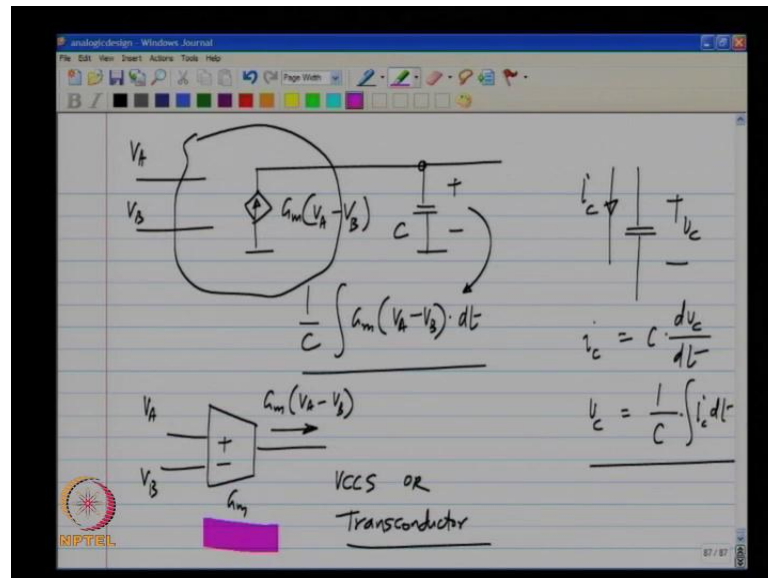 analogicdesign - Windows Journal
File Edit View Insert Actions Tools Help
Page Width
B I
V_A
V_B
G_m(V_A-V_B)
C
+
-
i_c
+
v_c
-
1/C ∫ G_m(V_A-V_B)·dt
i_c = C · dv_c/dt
v_c = 1/C · ∫ i_c dt
V_A
V_B
+
-
G_m
G_m(V_A-V_B)
VCCS OR
Transconductor
NPTEL
87 / 87